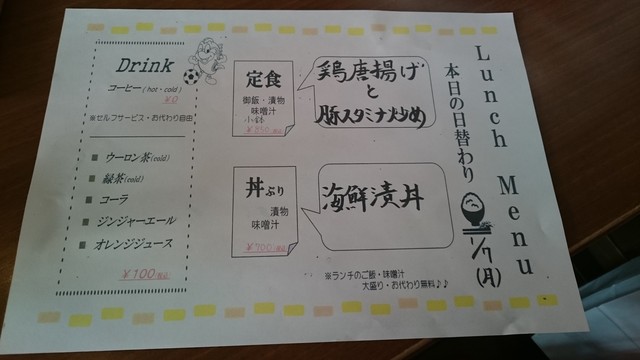 Lunch Menu
本日の日替わり
1/7(月)
定食
御飯・漬物
味噌汁
小鉢
¥850
鶏唐揚げ
と
豚スタミナ炒め
丼ぶり
漬物
味噌汁
¥700
海鮮漬丼
※ランチのご飯・味噌汁
大盛り・お代わり無料♪♪
Drink
コーヒー(hot・cold)
¥0
※セルフサービス・お代わり自由
■ ウーロン茶(cold)
■ 緑茶(cold)
■ コーラ
■ ジンジャーエール
■ オレンジジュース
¥100税込